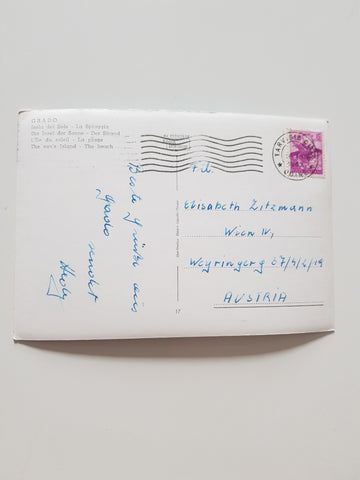 GRADO
Isola del Sole - La Spiaggia
Die Insel der Sonne - Der Strand
L'Ile du soleil - La plage
The sun's Island - The beach
TARVISIO
Frl.
Elisabeth Zitzmann
Wien IV,
Weyringerg 67/4/2/19
AUSTRIA
Beste Grüße aus
Grado
sendet
17